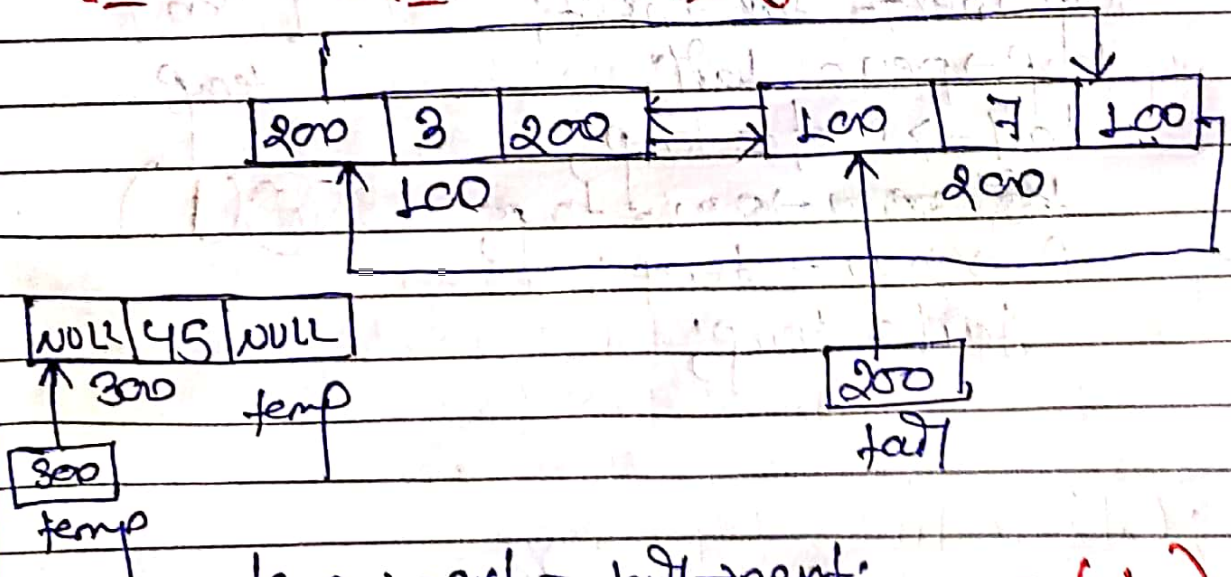 200 3 200 100 7 100
100 200
NULL 45 NULL
300 temp 200
tail
300
temp